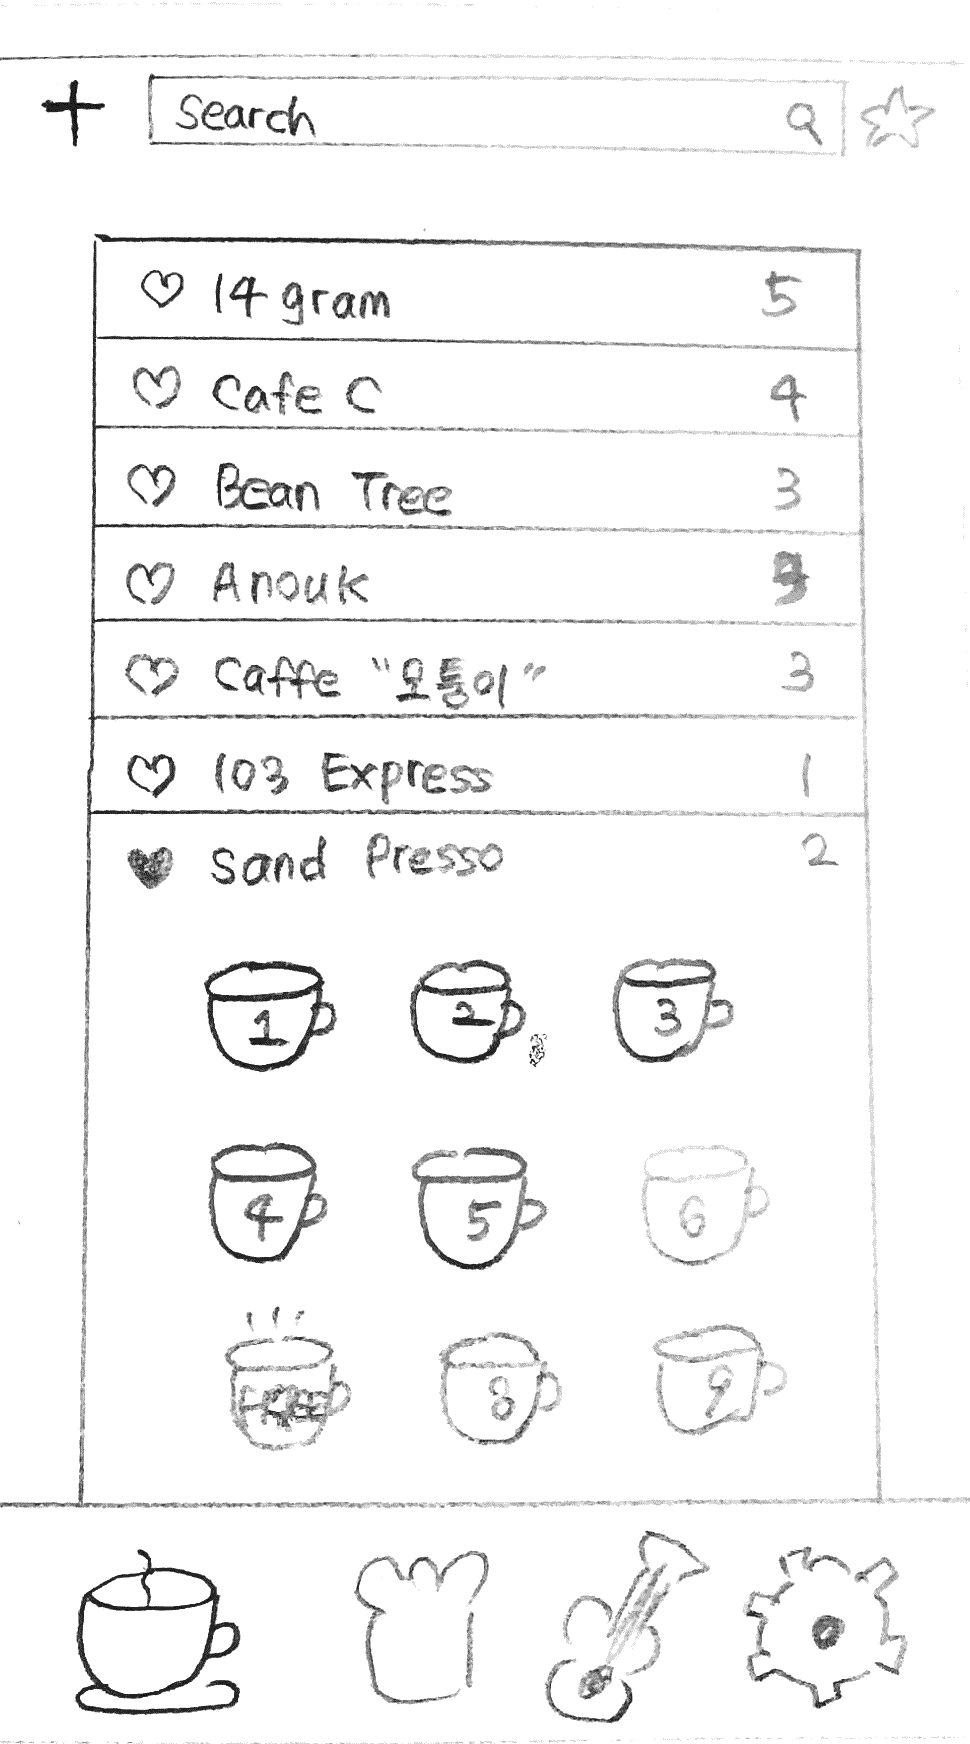 Search
14 gram 5
Cafe C 4
Bean Tree 3
Anouk
Caffe "오톨이" 3
103 Express 1
Sand Presso 2
1 2 3
4 5 6
8 9